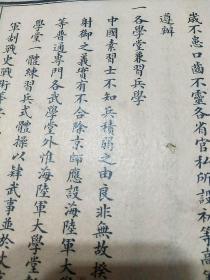 歲不惡口齒不靈各省官私所設初等高
遵辦
一各學堂兼習兵學
中國素習士不知兵積弱之由良非無故揆
射御之義實有不合除京師應設海陸軍大
等普通專門各武學堂外惟海陸軍大學堂
學堂一體練習兵式體操以肄武事並於文
軍制戰史戰術等